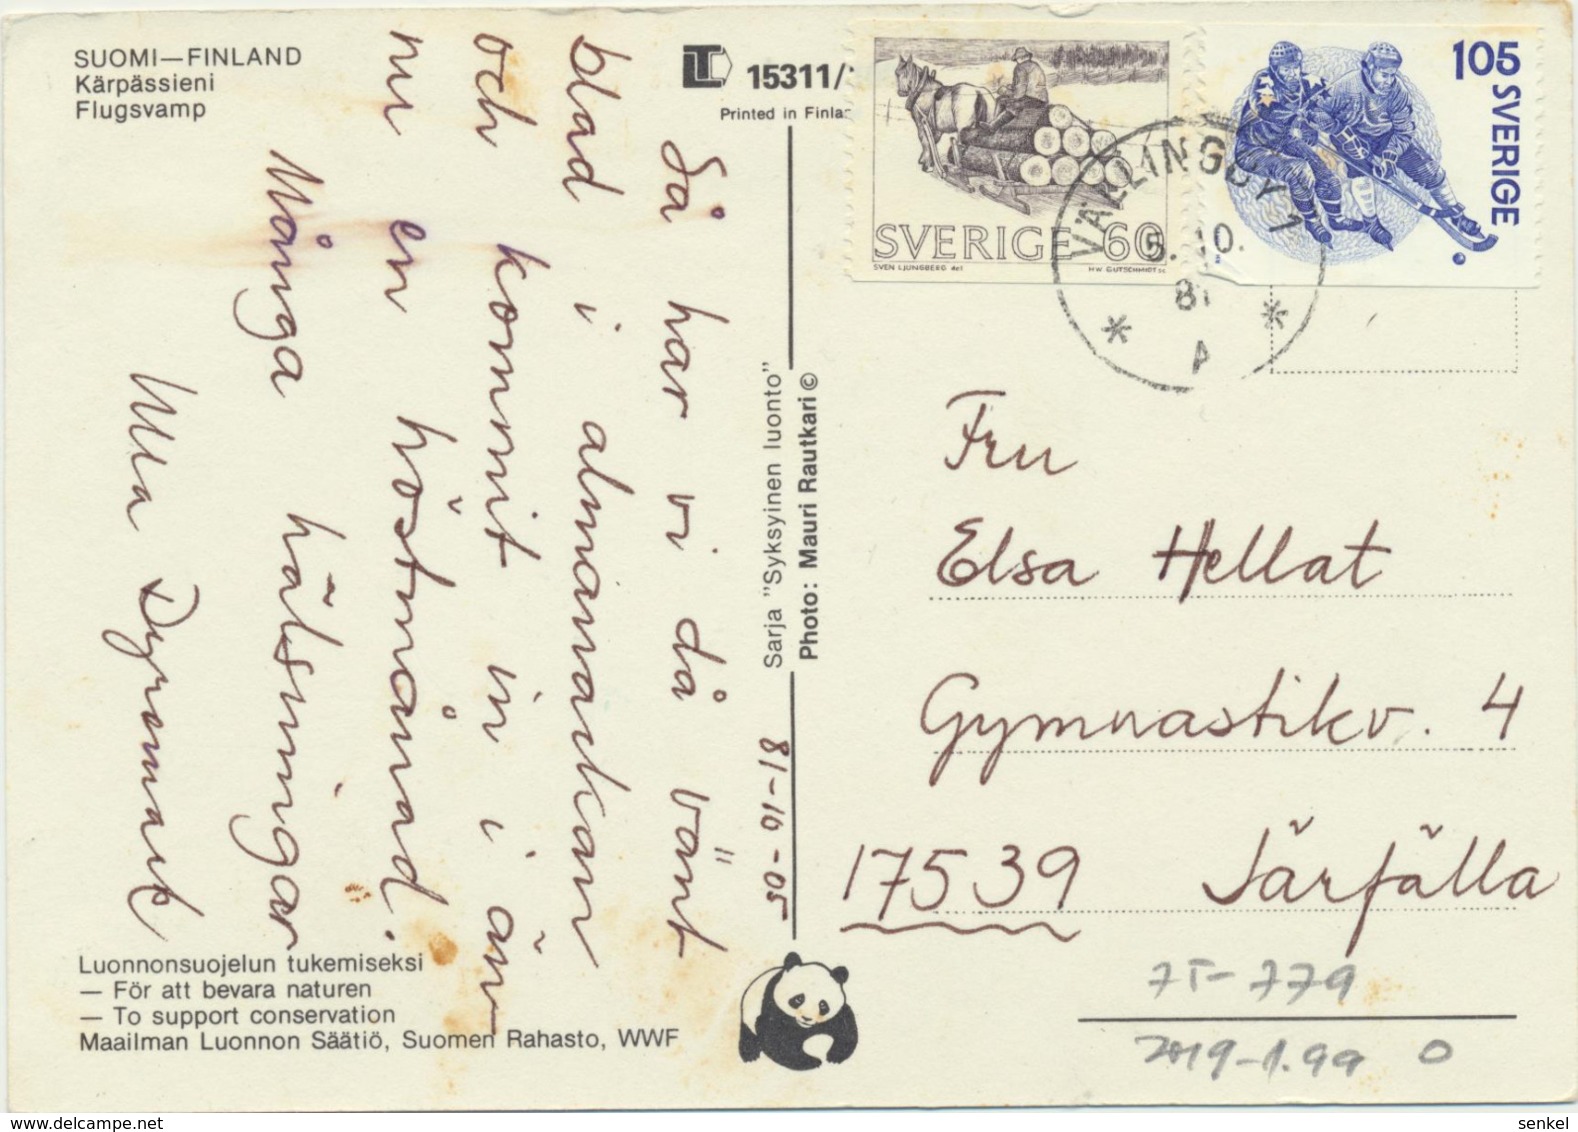 SUOMI—FINLAND
Kärpässieni
Flugsvamp
15311/
Printed in Finla
SVERIGE 60
SVEN LJUNGBERG del
HW GUTSCHMIDT sc
105 SVERIGE
VÄLLINGBY 1
5. 10.
81
Så har vi då vänt
blad i almanackan
och kommit in i än
nu en höstmånad.
Många hälsningar
Ulla Dyromark
81-10-05
Sarja "Syksyinen luonto"
Photo: Mauri Rautkari ©
Fru
Elsa Hellat
Gymnastikv. 4
17539 Järfälla
Luonnonsuojelun tukemiseksi
— För att bevara naturen
— To support conservation
Maailman Luonnon Säätiö, Suomen Rahasto, WWF
7T-779
2019-1.99 0
senkel